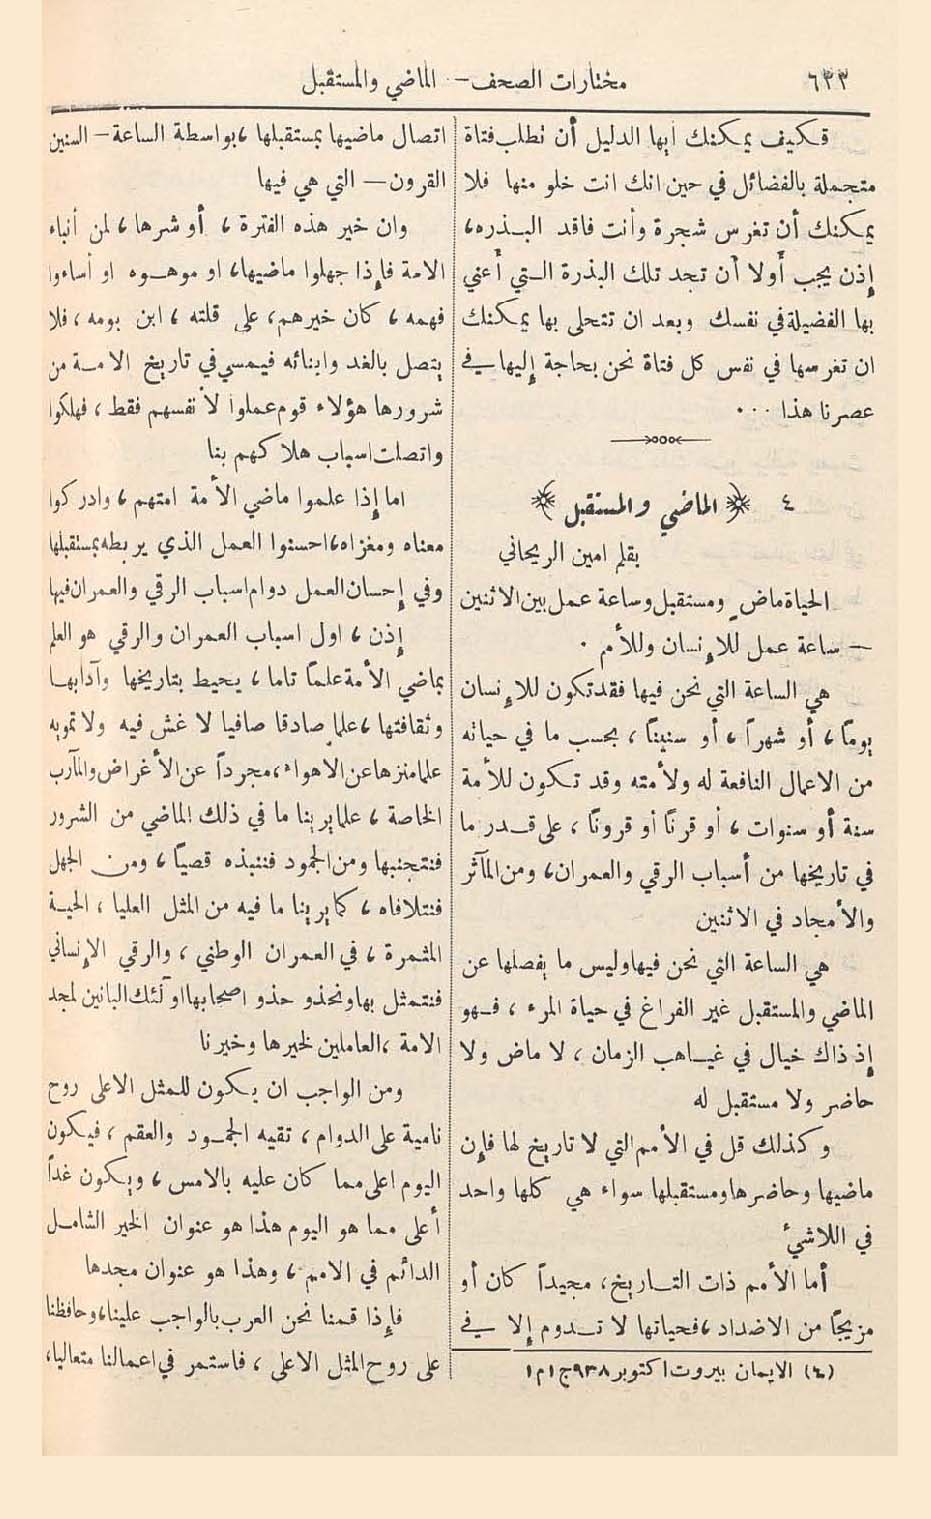 ٦٣٣ مختارات الصحف — الماضي والمستقبل
فكيف يمكنك ايها الدليل أن تطلب فتاة
متجملة بالفضائل في حين انك انت خلو منها فلا
يمكنك أن تغرس شجرة وأنت فاقد البذره،
إذن يجب أولا أن تجد تلك البذرة التي أعني
بها الفضيلة في نفسك وبعد ان تتحلى بها يمكنك
ان تغرسها في نفس كل فتاة نحن بحاجة إليها في
عصرنا هذا . . .
٤ ﴿الماضي والمستقبل﴾
بقلم امين الريحاني
الحياة ماض ومستقبل وساعة عمل بين الاثنين
— ساعة عمل للإنسان وللأمم .
هي الساعة التي نحن فيها فقد تكون للإنسان
يومًا، أو شهراً، أو سنينًا، بحسب ما في حياته
من الاعمال النافعة له ولأمته وقد تكون للأمة
سنة أو سنوات، أو قرنًا أو قرونًا، على قدر ما
في تاريخها من أسباب الرقي والعمران، ومن المآثر
والأمجاد في الاثنين
هي الساعة التي نحن فيها وليس ما يفصلها عن
الماضي والمستقبل غير الفراغ في حياة المرء، فهو
إذ ذاك خيال في غياهب الزمان، لا ماض ولا
حاضر ولا مستقبل له
وكذلك قل في الأمم التي لا تاريخ لها فإن
ماضيها وحاضرها ومستقبلها سواء هي كلها واحد
في اللاشيء
أما الأمم ذات التاريخ، مجيداً كان أو
مزيجًا من الاضداد، فحياتها لا تدوم إلا في
(٤) الايمان بيروت اكتوبر ٩٣٨ ج١م١
اتصال ماضيها بمستقبلها، بواسطة الساعة — السنين
القرون — التي هي فيها
وان خير هذه الفترة، أو شرها، لمن أنباء
الامة فإذا جهلوا ماضيها، او موهوه او أساءوا
فهمه، كان خيرهم، على قلته، ابن يومه، فلا
يتصل بالغد وابنائه فيمسي في تاريخ الامة من
شرورها هؤلاء قوم عملوا لأنفسهم فقط، فهلكوا
واتصلت اسباب هلاكهم بنا
اما إذا علموا ماضي الأمة امتهم، وادركوا
معناه ومغزاه، احسنوا العمل الذي يربطه بمستقبلها
وفي إحسان العمل دوام اسباب الرقي والعمران فيها
إذن، اول اسباب العمران والرقي هو العلم
بماضي الأمة علمًا تاما، يحيط بتاريخها وآدابها
وثقافتها، علما صادقا صافيا لا غش فيه ولا تمويه
علما منزها عن الاهواء، مجرداً عن الأغراض والمآرب
الخاصة، علما يرينا ما في ذلك الماضي من الشرور
فنتجنبها ومن الجمود فننبذه قصيًا، ومن الجهل
فنتلافاه، كما يرينا ما فيه من المثل العليا، الحية
المثمرة، في العمران الوطني، والرقي الإنساني
فنتمثل بها ونحذو حذو اصحابها اولئك البانين لمجد
الامة، العاملين لخيرها وخيرنا
ومن الواجب ان يكون للمثل الاعلى روح
نامية على الدوام، تقيه الجمود والعقم، فيكون
اليوم اعلى مما كان عليه بالامس، ويكون غداً
أعلى مما هو اليوم هذا هو عنوان الخير الشامل
الدائم في الامم، وهذا هو عنوان مجدها
فإذا قمنا نحن العرب بالواجب علينا، وحافظنا
على روح المثل الاعلى، فاستمر في اعمالنا متعاليا،